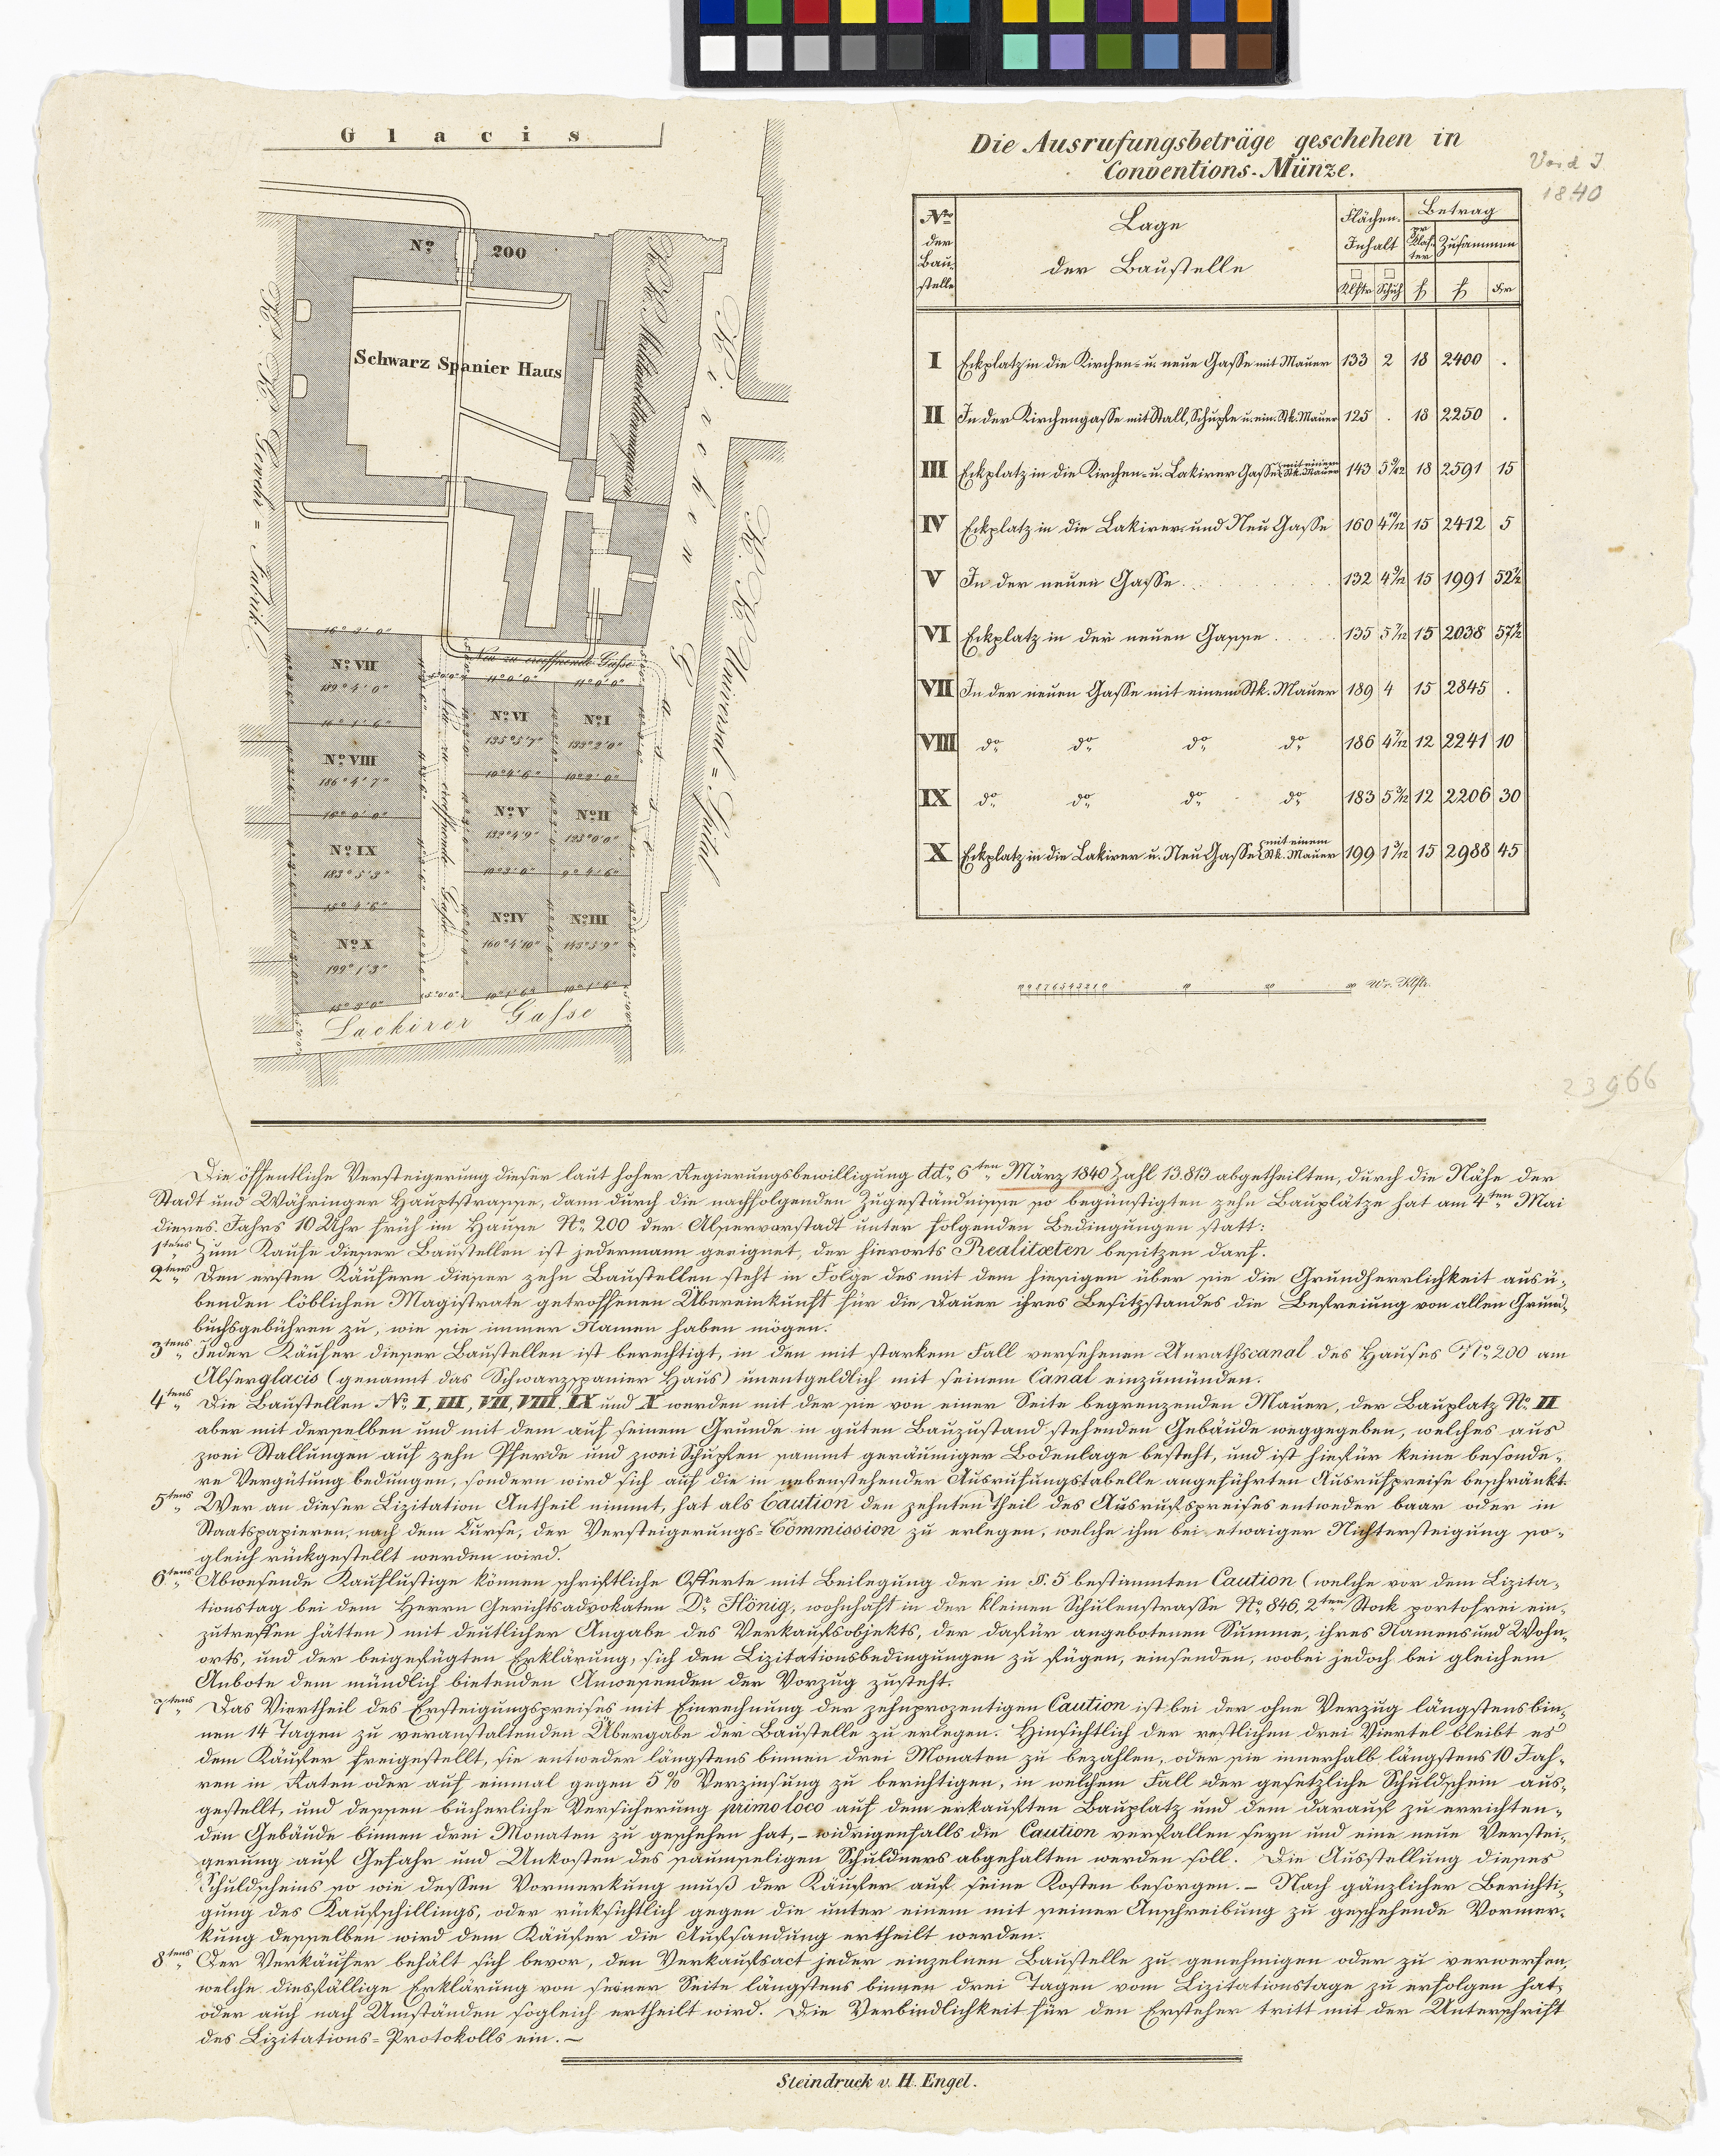 Glacis
Nº 200
Schwarz Spanier Haus
K. K. Militärstallungen
Kirchen G.
K. K. Gewehr = Fabrik
K. K. Universal = Spital
Neu zu eroeffnende Gasse
Neu zu eroeffnende Gasse
Nº VII
189° 4' 0"
Nº VIII
186° 4' 7"
Nº IX
183° 5' 3"
Nº X
199° 1' 3"
Nº VI
135° 5' 7"
Nº I
133° 2' 0"
Nº V
132° 4' 9"
Nº II
125° 0' 0"
Nº IV
160° 4' 10"
Nº III
143° 5' 9"
Lackirer Gasse
Die Ausrufungsbeträge geschehen in
Conventions-Münze.
Vord J.
1840
Nro der Bau-stelle | Lage der Baustelle | Flächen-Inhalt | Betrag
pr Klaf-ter | Zusammen
Klftr | Schuh | f | f | kr
I Eckplatz in die Kirchen- u. neue Gasse mit Mauer 133 2 18 2400 .
II In der Kirchengasse mit Stall, Schupfe u. ein. Stk. Mauer 125 . 18 2250 .
III Eckplatz in die Kirchen- u. Lakirer Gasse mit einem Stk. Mauer 143 5 9/12 18 2591 15
IV Eckplatz in die Lakirer- und Neu Gasse 160 4 10/12 15 2412 5
V In der neuen Gasse 132 4 9/12 15 1991 52½
VI Eckplatz in der neuen Gasse 135 5 7/12 15 2038 57½
VII In der neuen Gasse mit einem Stk. Mauer 189 4 15 2845 .
VIII do do do do 186 4 7/12 12 2241 10
IX do do do do 183 5 3/12 12 2206 30
X Eckplatz in die Lakirer u. Neu Gasse mit einem Stk. Mauer 199 1 3/12 15 2988 45
10 9 8 7 6 5 4 3 2 1 0 10 20 30 Wr. Klftr.
23966
Die öffentliche Versteigerung dieser laut hoher Regierungsbewilligung ddo 6ten März 1840 Zahl 13.813 abgetheilten, durch die Nähe der
Stadt und Währinger Hauptstrasse, dann durch die nachfolgenden Zugeständnisse so begünstigten zehn Bauplätze hat am 4ten Mai
dieses Jahrs 10 Uhr früh im Hause Nº 200 der Alservorstadt unter folgenden Bedingungen statt:
1tens Zum Kaufe dieser Baustellen ist jedermann geeignet, der hierorts Realitæten besitzen darf.
2tens Den ersten Käufern dieser zehn Baustellen steht in Folge des mit dem hiesigen über sie die Grundherrlichkeit ausü-
benden löblichen Magistrate getroffenen Übereinkunft für die Dauer ihres Besitzstandes die Befreiung von allen Grund-
buchsgebühren zu, wie sie immer Namen haben mögen.
3tens Jeder Käufer dieser Baustellen ist berechtigt, in den mit starkem Fall versehenen Unrathscanal des Hauses Nº 200 am
Alserglacis (genannt das Schwarzspanier Haus) unentgeldlich mit seinem Canal einzumünden.
4tens Die Baustellen Nº I, III, VII, VIII, IX und X werden mit der sie von einer Seite begrenzenden Mauer, der Bauplatz Nº II
aber mit derselben und mit dem auf seinem Grunde in guten Bauzustand stehenden Gebäude weggegeben, welches aus
zwei Stallungen auf zehn Pferde und zwei Schupfen sammt geräumiger Bodenlage besteht, und ist hiefür keine besonde-
re Vergütung bedungen, sondern wird sich auf die in nebenstehender Ausrufungstabelle angeführten Ausrufspreise beschränkt.
5tens Wer an dieser Lizitation Antheil nimmt, hat als Caution den zehnten Theil des Ausrufspreises entweder baar oder in
Staatspapieren, nach dem Kurse, der Versteigerungs=Commission zu erlegen, welche ihm bei etwaiger Nichtersteigung so-
gleich rückgestellt werden wird.
6tens Abwesende Kauflustige können schriftliche Offerte mit Beilegung der in §. 5 bestimmten Caution (welche vor dem Lizita-
tionstag bei dem Herrn Gerichtsadvokaten Dr Hönig, wohnhaft in der kleinen Schulenstrasse Nº 846, 2ten Stock portofrei ein-
zutreffen hätten) mit deutlicher Angabe des Verkaufsobjekts, der dafür angebotenen Summe, ihres Namens und Wohn-
orts, und der beigefügten Erklärung, sich den Lizitationsbedingungen zu fügen, einsenden, wobei jedoch bei gleichem
Anbote dem mündlich bietenden Anwesenden der Vorzug zusteht.
7tens Das Viertheil des Ersteigungspreises mit Einrechnung der zehnprozentigen Caution ist bei der ohne Verzug längstens bin-
nen 14 Tagen zu veranstaltenden Übergabe der Baustelle zu erlegen. Hinsichtlich der restlichen drei Viertel bleibt es
dem Käufer freigestellt, sie entweder längstens binnen drei Monaten zu bezahlen, oder sie innerhalb längstens 10 Jah-
ren in Raten oder auf einmal gegen 5% Verzinsung zu berichtigen, in welchem Fall der gesetzliche Schuldschein aus-
gestellt, und dessen bücherliche Versicherung primo loco auf dem erkauften Bauplatz und dem darauf zu errichten-
den Gebäude binnen drei Monaten zu geschehen hat, – widrigenfalls die Caution verfallen seyn und eine neue Verstei-
gerung auf Gefahr und Unkosten des saumseligen Schuldners abgehalten werden soll. Die Ausstellung dieses
Schuldscheins so wie dessen Vormerkung muß der Käufer auf seine Kosten besorgen. – Nach gänzlicher Berichti-
gung des Kaufschillings, oder rücksichtlich gegen die unter einem mit seiner Anschreibung zu geschehende Vormer-
kung desselben wird dem Käufer die Aufsandung ertheilt werden.
8tens Der Verkäufer behält sich bevor, den Verkaufsact jeder einzelnen Baustelle zu genehmigen oder zu verwerfen,
welche diesfällige Erklärung von seiner Seite längstens binnen drei Tagen vom Lizitationstage zu erfolgen hat,
oder auch nach Umständen sogleich ertheilt wird. Die Verbindlichkeit für den Ersteher tritt mit der Unterschrift
des Lizitations=Protokolls ein. –
Steindruck v. H. Engel.